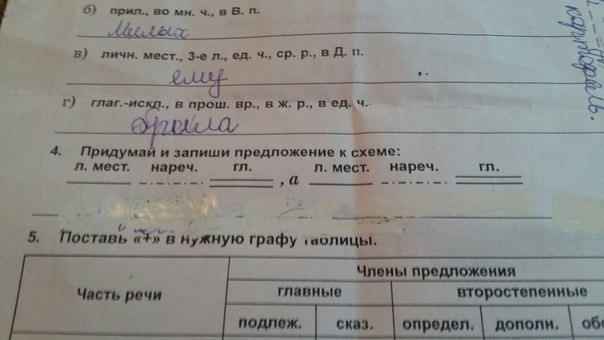 б) прил., во мн. ч., в В. п.
Милых
в) личн. мест., 3-е л., ед. ч., ср. р., в Д. п.
ему
г) глаг.-искл., в прош. вр., в ж. р., в ед. ч.
4. Придумай и запиши предложение к схеме:
л. мест. нареч. гл. , а л. мест. нареч. гл.
5. Поставь «+» в нужную графу таблицы.
Часть речи
Члены предложения
главные второстепенные
подлеж. сказ. определ. дополн. обс